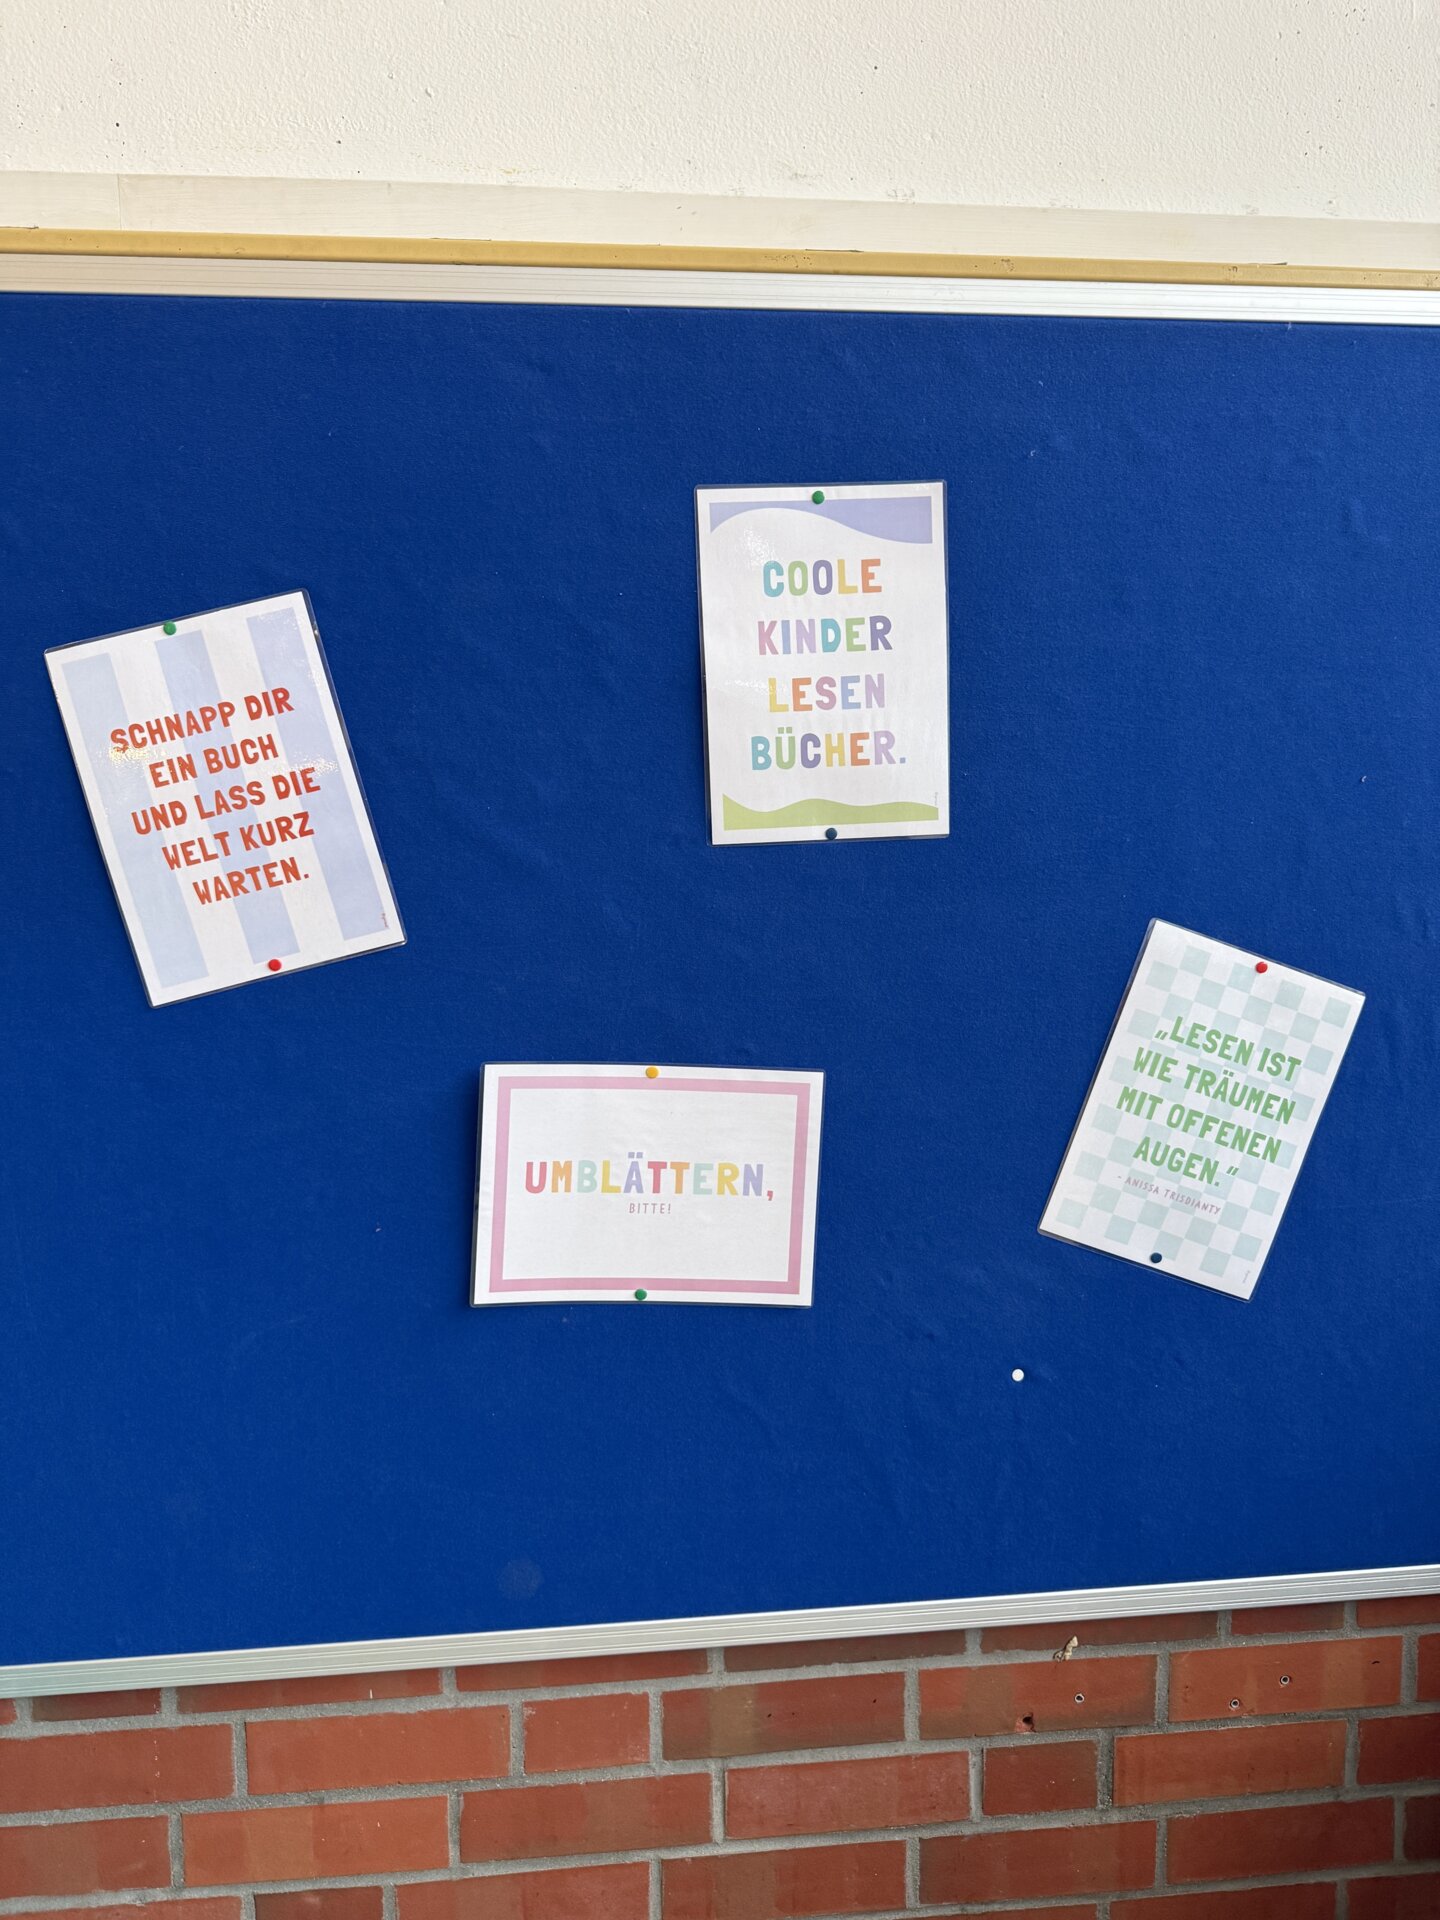 SCHNAPP DIR
EIN BUCH
UND LASS DIE
WELT KURZ
WARTEN.
COOLE
KINDER
LESEN
BÜCHER.
UMBLÄTTERN,
BITTE!
„LESEN IST
WIE TRÄUMEN
MIT OFFENEN
AUGEN.“
- ANISSA TRISDIANTY